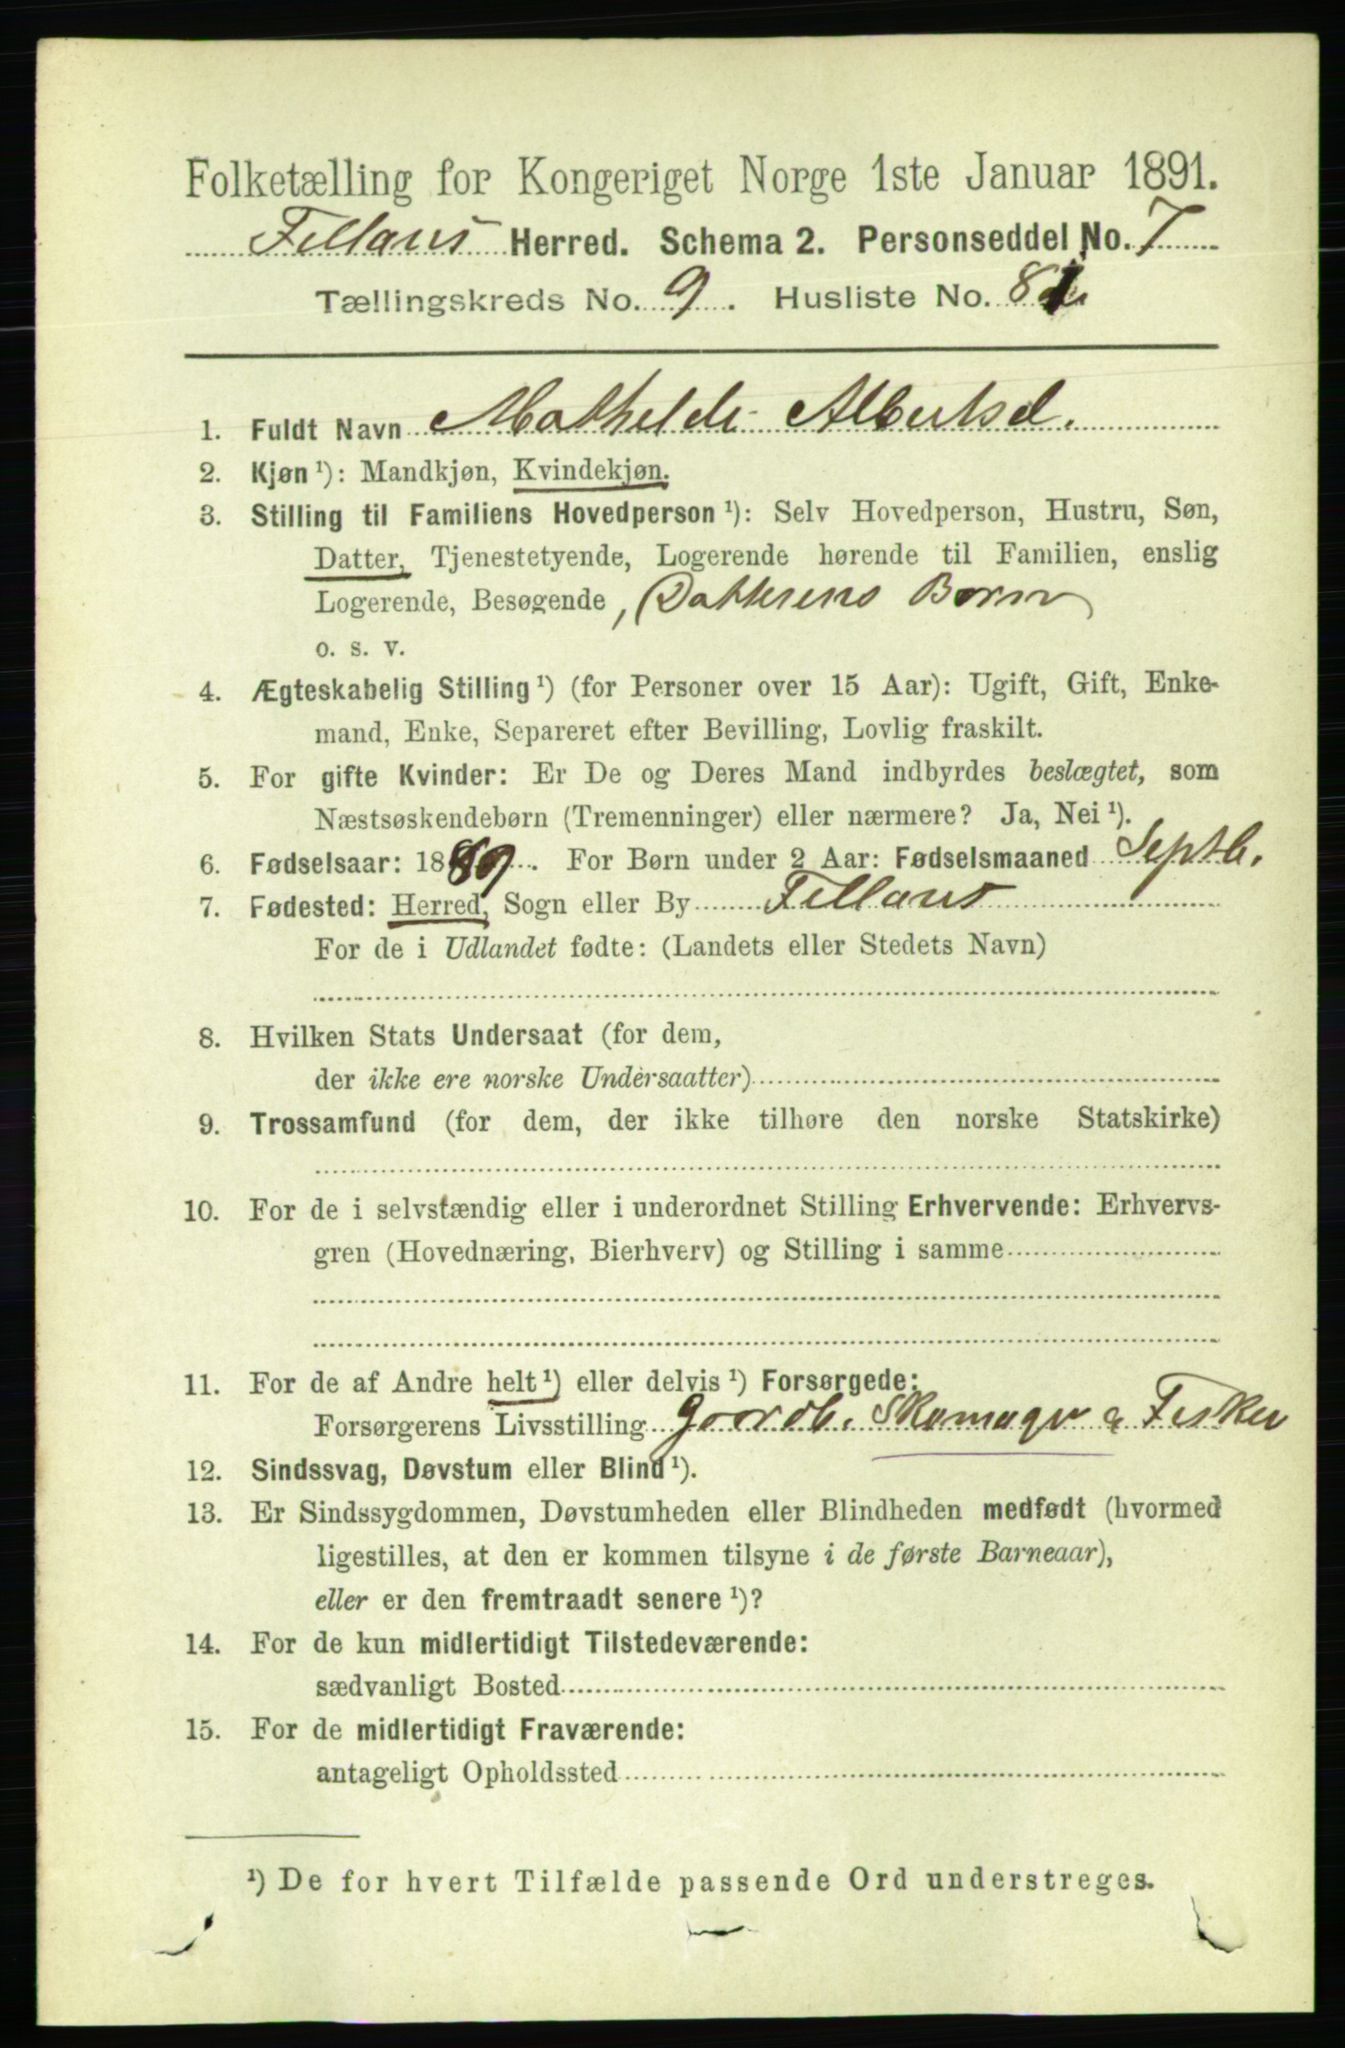 Folketælling for Kongeriget Norge 1ste Januar 1891.
Fillans Herred. Schema 2. Personseddel No. 7
Tællingskreds No. 9. Husliste No. 81
1. Fuldt Navn Mathilde Albertsd.
2. Kjøn ¹): Mandkjøn, Kvindekjøn.
3. Stilling til Familiens Hovedperson ¹): Selv Hovedperson, Hustru, Søn,
Datter, Tjenestetyende, Logerende hørende til Familien, enslig
Logerende, Besøgende, Datterens Børn
o. s. v.
4. Ægteskabelig Stilling ¹) (for Personer over 15 Aar): Ugift, Gift, Enke-
mand, Enke, Separeret efter Bevilling, Lovlig fraskilt.
5. For gifte Kvinder: Er De og Deres Mand indbyrdes beslægtet, som
Næstsøskendebørn (Tremenninger) eller nærmere? Ja, Nei ¹).
6. Fødselsaar: 1889. For Børn under 2 Aar: Fødselsmaaned Septb.
7. Fødested: Herred, Sogn eller By Fillans
For de i Udlandet fødte: (Landets eller Stedets Navn)
8. Hvilken Stats Undersaat (for dem,
der ikke ere norske Undersaatter)
9. Trossamfund (for dem, der ikke tilhøre den norske Statskirke)
10. For de i selvstændig eller i underordnet Stilling Erhvervende: Erhvervs-
gren (Hovednæring, Bierhverv) og Stilling i samme
11. For de af Andre helt ¹) eller delvis ¹) Forsørgede:
Forsørgerens Livsstilling Gaardb. Skomager & Fisker
12. Sindssvag, Døvstum eller Blind ¹).
13. Er Sindssygdommen, Døvstumheden eller Blindheden medfødt (hvormed
ligestilles, at den er kommen tilsyne i de første Barneaar),
eller er den fremtraadt senere ¹)?
14. For de kun midlertidigt Tilstedeværende:
sædvanligt Bosted
15. For de midlertidigt Fraværende:
antageligt Opholdssted
¹) De for hvert Tilfælde passende Ord understreges.